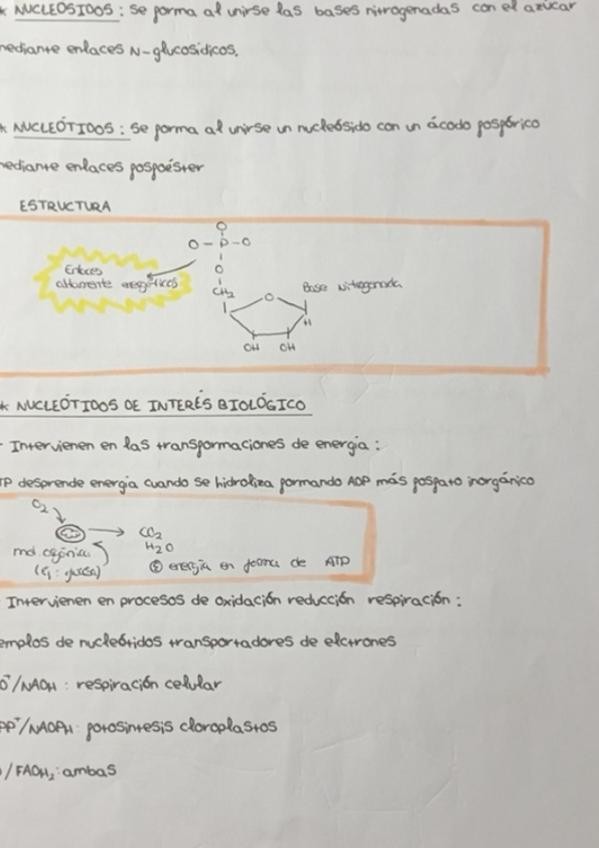 * NUCLEÓSIDOS: Se forma al unirse las bases nitrogenadas con el azúcar
mediante enlaces N-glucosídicos.
* NUCLEÓTIDOS: Se forma al unirse un nucleósido con un ácodo fosfórico
mediante enlaces fosfoéster
ESTRUCTURA
O
O-P-O
O
Enlaces altamente energéticos
CH2
O
Base Nitrogenada
H
OH OH
* NUCLEÓTIDOS DE INTERÉS BIOLÓGICO
- Intervienen en las transformaciones de energía:
TP desprende energía cuando se hidroliza formando ADP más fosfato inorgánico
O2
CO2
mol. orgánica
H2O
(ej: glucosa)
E energía en forma de ATP
Intervienen en procesos de oxidación reducción respiración:
emplos de nucleótidos transportadores de elctrones
D+/NADH: respiración celular
PP+/NADPH: fotosintesis cloroplastos
/FADH2: ambas